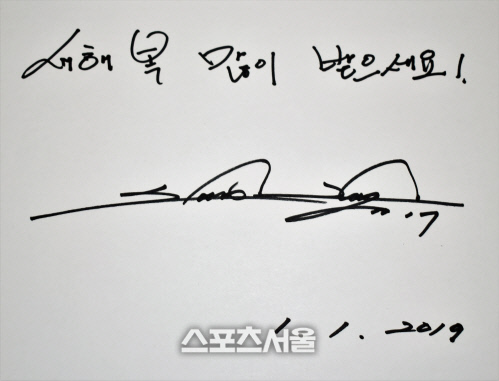 새해 복 많이 받으세요!
17
1. 1. 2019
스포츠서울